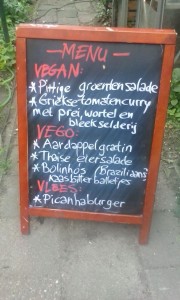 MENU
VEGAN:
* Pittige groentensalade
* Griekse tomatencurry
met prei, wortel en
bleekselderij
VEGO:
* Aardappelgratin
* Thaise eiersalade
* Bolinho's (Braziliaans
kaasbitterballetjes
VLEES:
* Picanhaburger